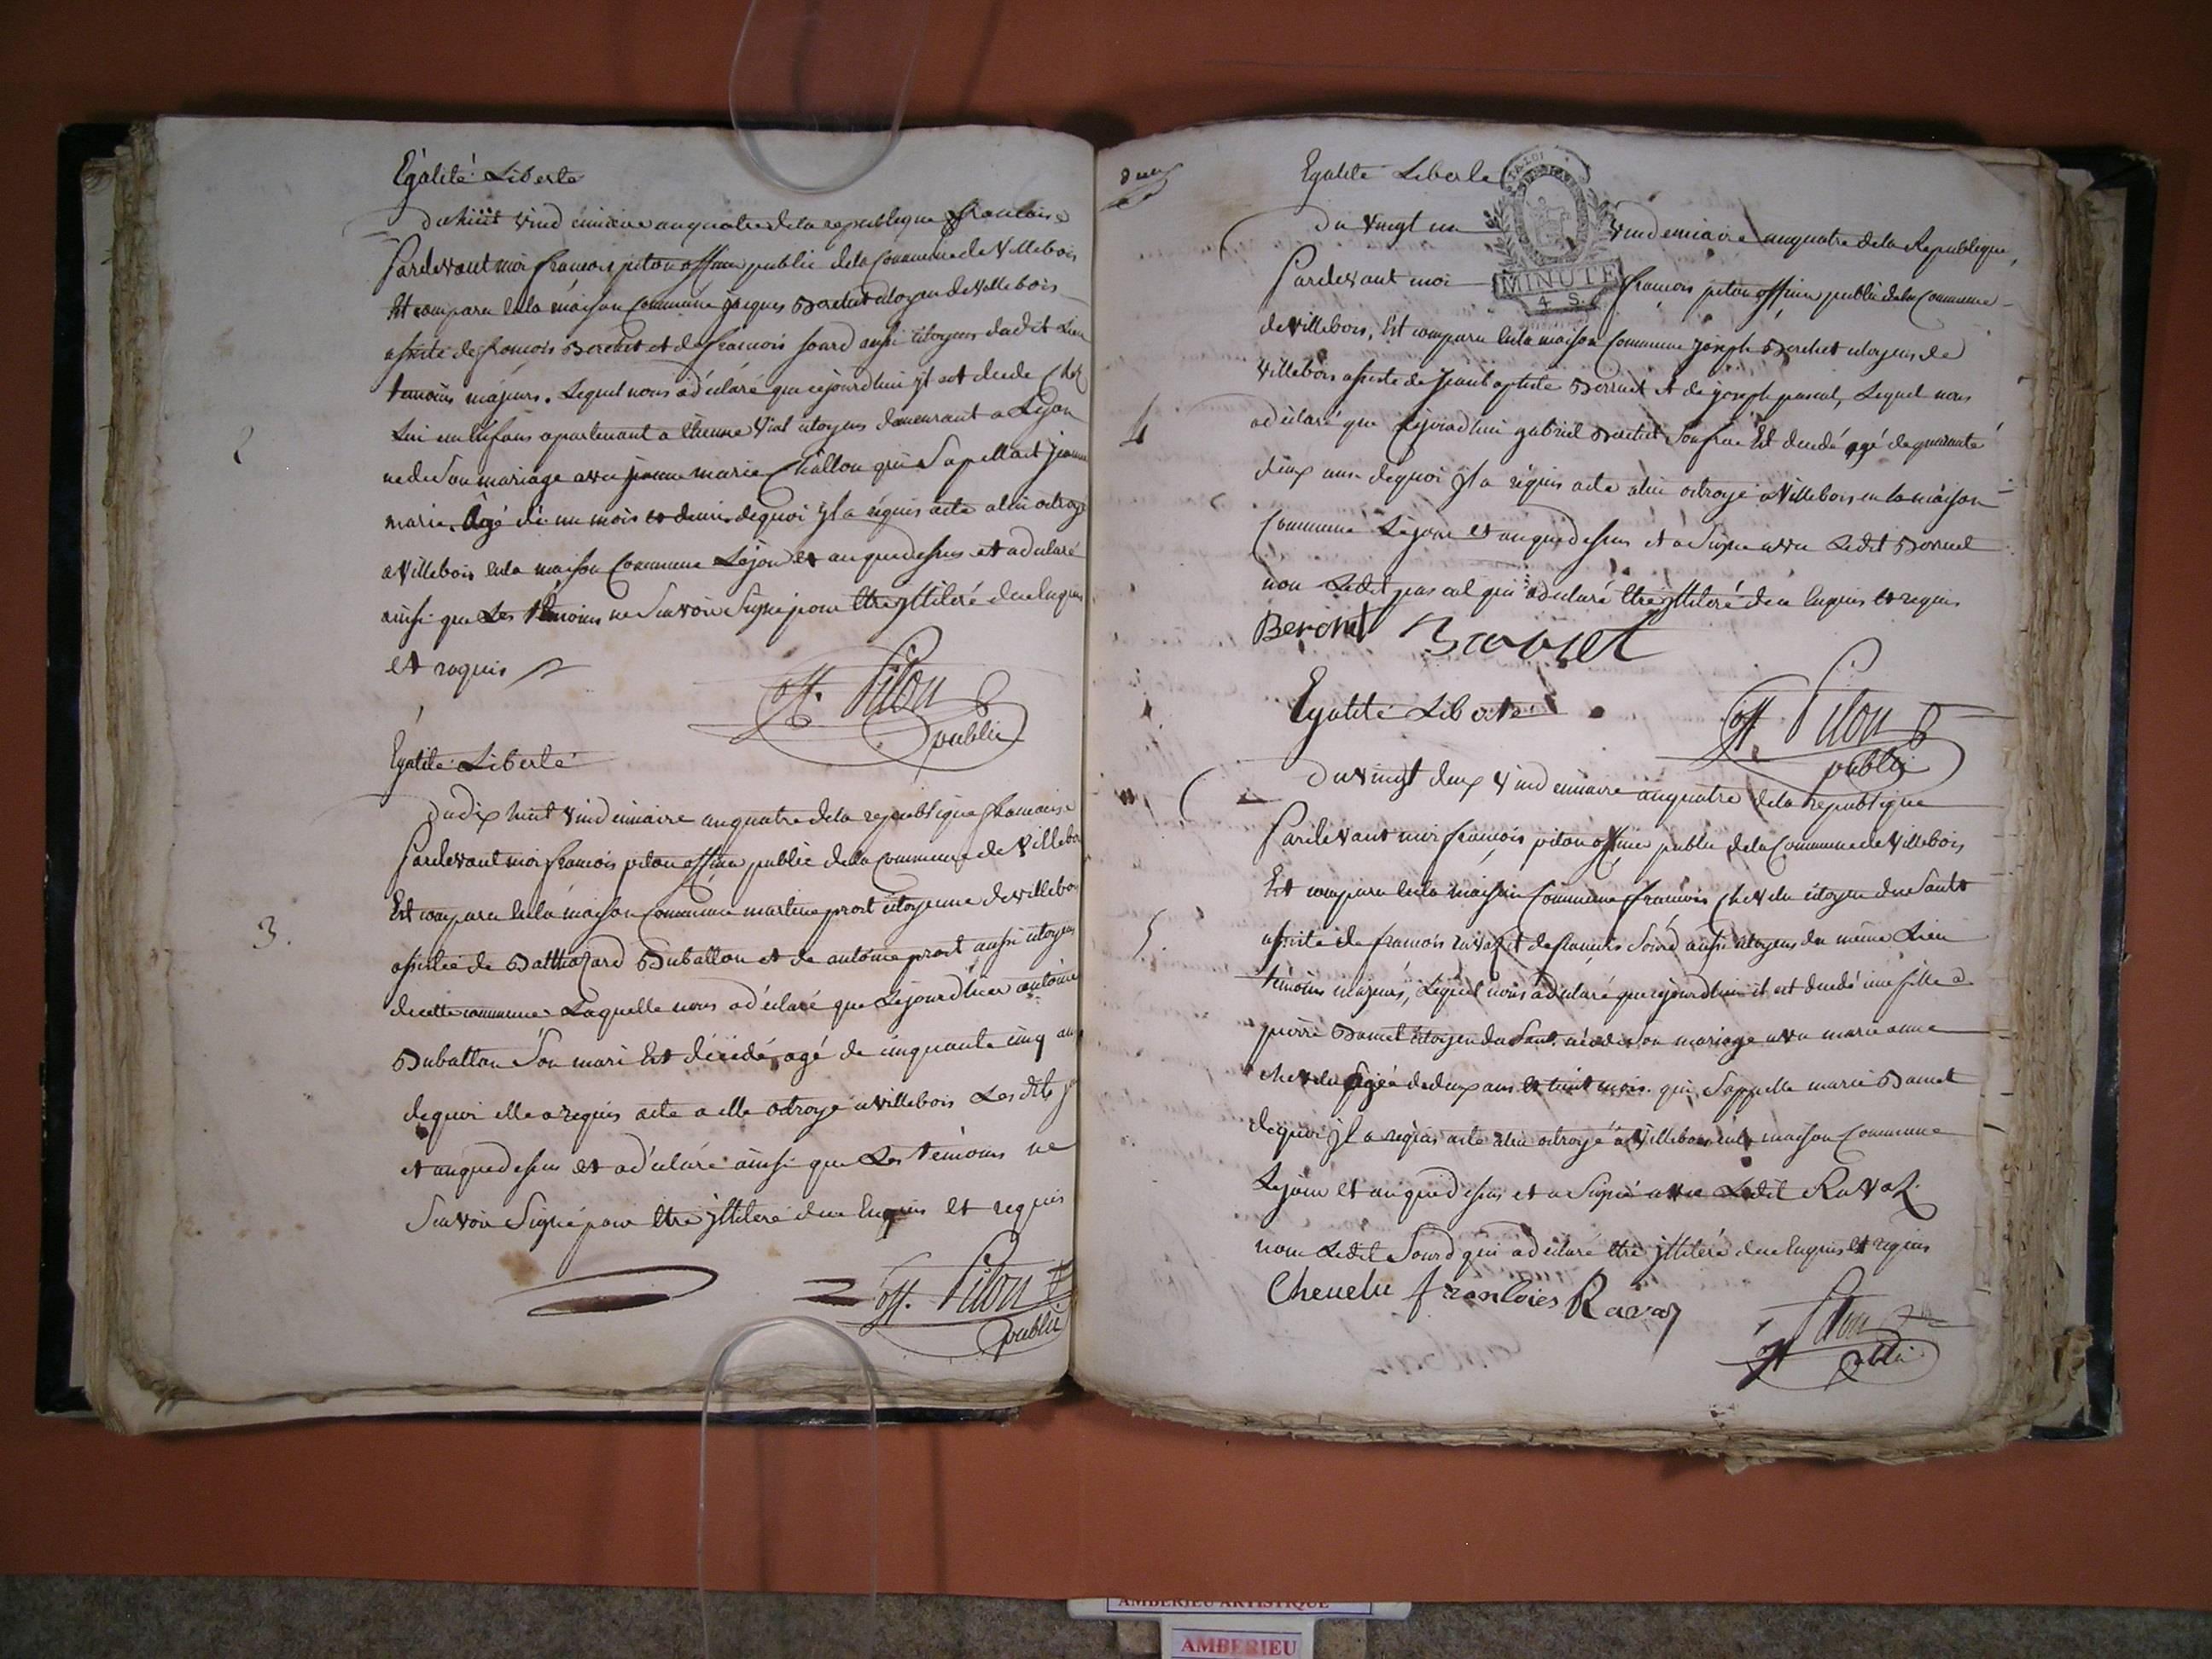 Egalité Liberte
du huit vind emiaire an quatre de la republique francoise
Pardevant moi francois piton officier public dela Commune de Villebois
Est comparu en la maison Commune jacques Berchet citoyen de Villebois
assisté de francois Berchet et de francois sourd aussi citoyens dudit Lieu
2
temoins majeurs. Lequel nous a déclaré que cejourdhui jl est decede chez
Lui un Enfans apartenant a Etienne Vial citoyen demeurant a Lyon
né de son mariage avec jeanne marie Challon qui S'apellait jeanne
marie. Âgé de un mois et demi. dequoi jl a réquis acte a lui octroyé
a Villebois en la maison Commune Lejour et an que dessus et a declaré
ainsi que Les témoins ne Savoir Signé pour Etre jlliteré de ce Enquis
et requis
off. Piton
public
Egalité Liberté
du dix huit Vind emiaire an quatre dela republique francoise
Pardevant moi francois piton officier public dela Commune de Villebois
Est comparu en la maison Commune martine prost citoyenne de villebois
3.
assistée de Balthazard Buballon et de antoine prost aussi citoyens
de cette commune. Laquelle nous a déclaré que Lejourdhier antoine
Buballon Son mari Est décédé, agé de cinquante cinq ans
dequoi elle a requis acte a elle octroyé a villebois Lesdits jour
et an que dessus et a déclaré ainsi que Les témoins ne
Savoir Signé pour Etre jlliteré de ce Enquis et requis
off. Piton
public
deux
Egalité Liberte
MINUTE
4 S.
Du Vingt un Vind emiaire an quatre de la Republique,
Pardevant moi francois piton officier public dela Commune
de Villebois, Est comparu en la maison Commune joseph Berchet citoyen de
Villebois assisté de Jean baptiste Bornet et de joseph pascal, Lequel nous
4
a déclaré que Cejourdhui gabriel Berchet Son frere Est decedé agé de quarante
deux ans dequoi jl a réquis acte a lui octroyé a Villebois en la maison
Commune Lejour et an que dessus et a Signé avec Ledit Bornet
non Ledit pascal qui a declaré Etre jlliteré de ce Enquis et requis
Berchet Bornet
off. Piton
public
Egalité Liberte
Du Vingt deux Vind emiaire an quatre dela republique
Pardevant moi francois piton officier public dela Commune de Villebois
Est comparu en la maison Commune francois Chevelu citoyen du Sault
5.
assisté de francois ravaz et de francois Sourd aussi citoyens du même Lieu
témoins majeurs, Lequel nous a declaré que cejourdhui il est decedé une fille a
pierre Bamet citoyen du Sault. née de Son mariage avec marie anne
chevelu agée de deux ans et huit mois. qui S'appelle marie Bamet
dequoi jl a requis acte a lui octroyé a Villebois en la maison Commune
Lejour et an que dessus et a Signé avec Ledit Ravaz
non Ledit Sourd qui a declaré Etre jlliteré de ce Enquis et requis
Chevelu francoies Ravaz
off. Piton
public
AMBERIEU ARTISTIQUE
AMBERIEU